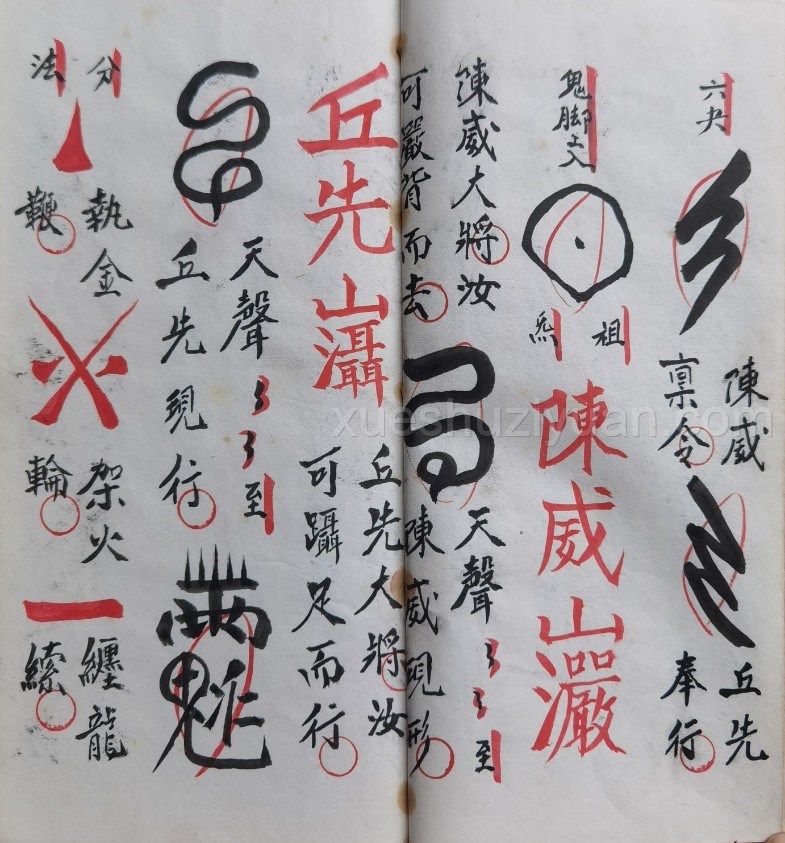 六夬
陳威
稟令
丘先
奉行
鬼脚上入
祖
炁
陳威山巖
陳威大將汝
可嚴背而去
天聲
至
陳威現形
丘先山灄
丘先大將汝
可躡足而行
天聲
至
丘先現行
分
法
執金
鞭
架火
輪
纏龍
xueshuziyuan.com